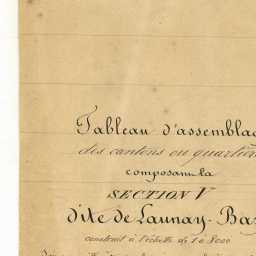 Tableau d'assemblag
des cantons ou quartie
composant la
SECTION V
dite de Launay-Ba
construit à l'échelle de 1 à 8000